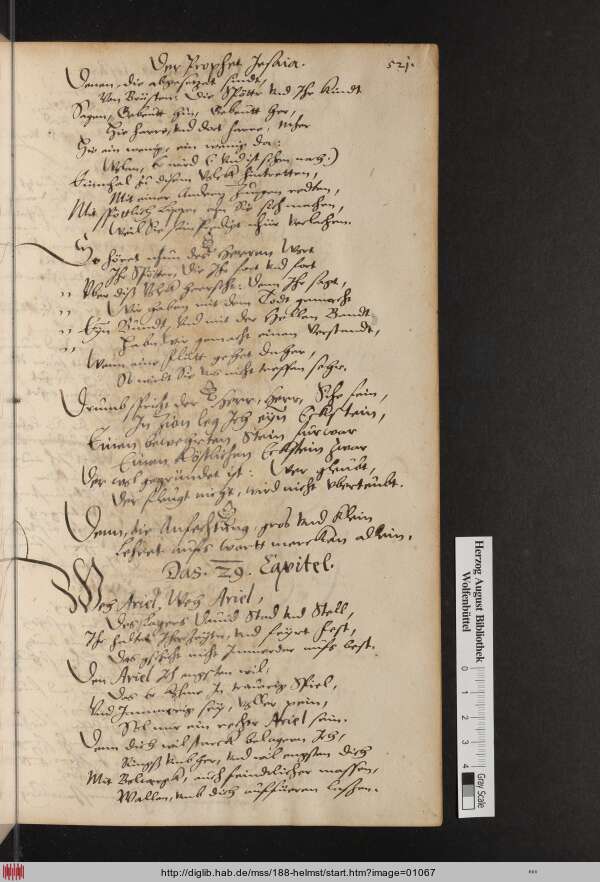 Der Prophet Jesaia.
521.
Denen, die abgesetzt sindt,
Von Brüsten: Die Spötter Vnd Ihr Kindt
Sagen, Gebeutt hin, Gebeutt her,
Hie harre, Vnd dort harre, mher
Hie ein wenig, ein wenig da:
Wolan, Er wird
Einmhal zu disem Volck
Mit einer Andern Zungen redten,
Mit spöttisch Lippen
Weil Sie sein Predigt nhur verlachen.
So höret nhun des Herren Wort
Ihr Spötter, die Ihr fort vnd fort
Vber diß Volck herrscht: Denn Ihr sagt,
Wir haben mit dem Todt gemacht
Eyn Bundt, Vnd mit der Hellen Bandt
Haben wir gemacht einen Verstandt,
Wenn eine Flutt gehet daher,
So wirdt Sie vns nicht treffen sehr.
Drumb spricht der Herr, Herr, Sihe fein,
In Zion leg Ich eyn Eckstein,
Einen bewerten Stein fürwar
Einen Köstlichen Eckstein zwar
Der wol gegründet ist: Wer gleubt,
Der fleugt nicht, wird nicht vbertäubt.
Denn, die Anfechtung, gros vnd klein
Lehret auffs wortt mercken allein.
Das. 29. Capitel.
Weh Ariel, Weh Ariel,
Des Lagers Dauid Stad vnd Stell,
Ihr haltet Iharzeyten, vnd feyret fest,
Den Ariel Ich engsten wil,
Das er Traurig
Vnd Jammerig sey, voller pein,
Sol mir ein rechter Ariel sein.
Denn dich wil starck belagern Ich,
Ringst vmbher, vnd wil engsten dich
Mit Bolwerck, auch feindlicher massen,
Wallen, vmb dich aufffüeren lassen.
Herzog August Bibliothek
Wolfenbüttel
0 1 2 3 4
Gray Scale
http://diglib.hab.de/mss/188-helmst/start.htm?image=01067